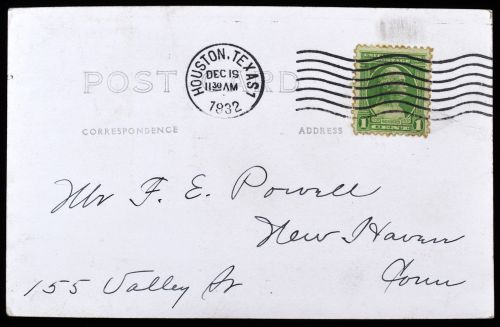 HOUSTON, TEXAS 1
DEC 19
11 30 AM
1932
POST CARD
CORRESPONDENCE
ADDRESS
1
Mr F. E. Powell
New Haven
155 Valley St
Conn